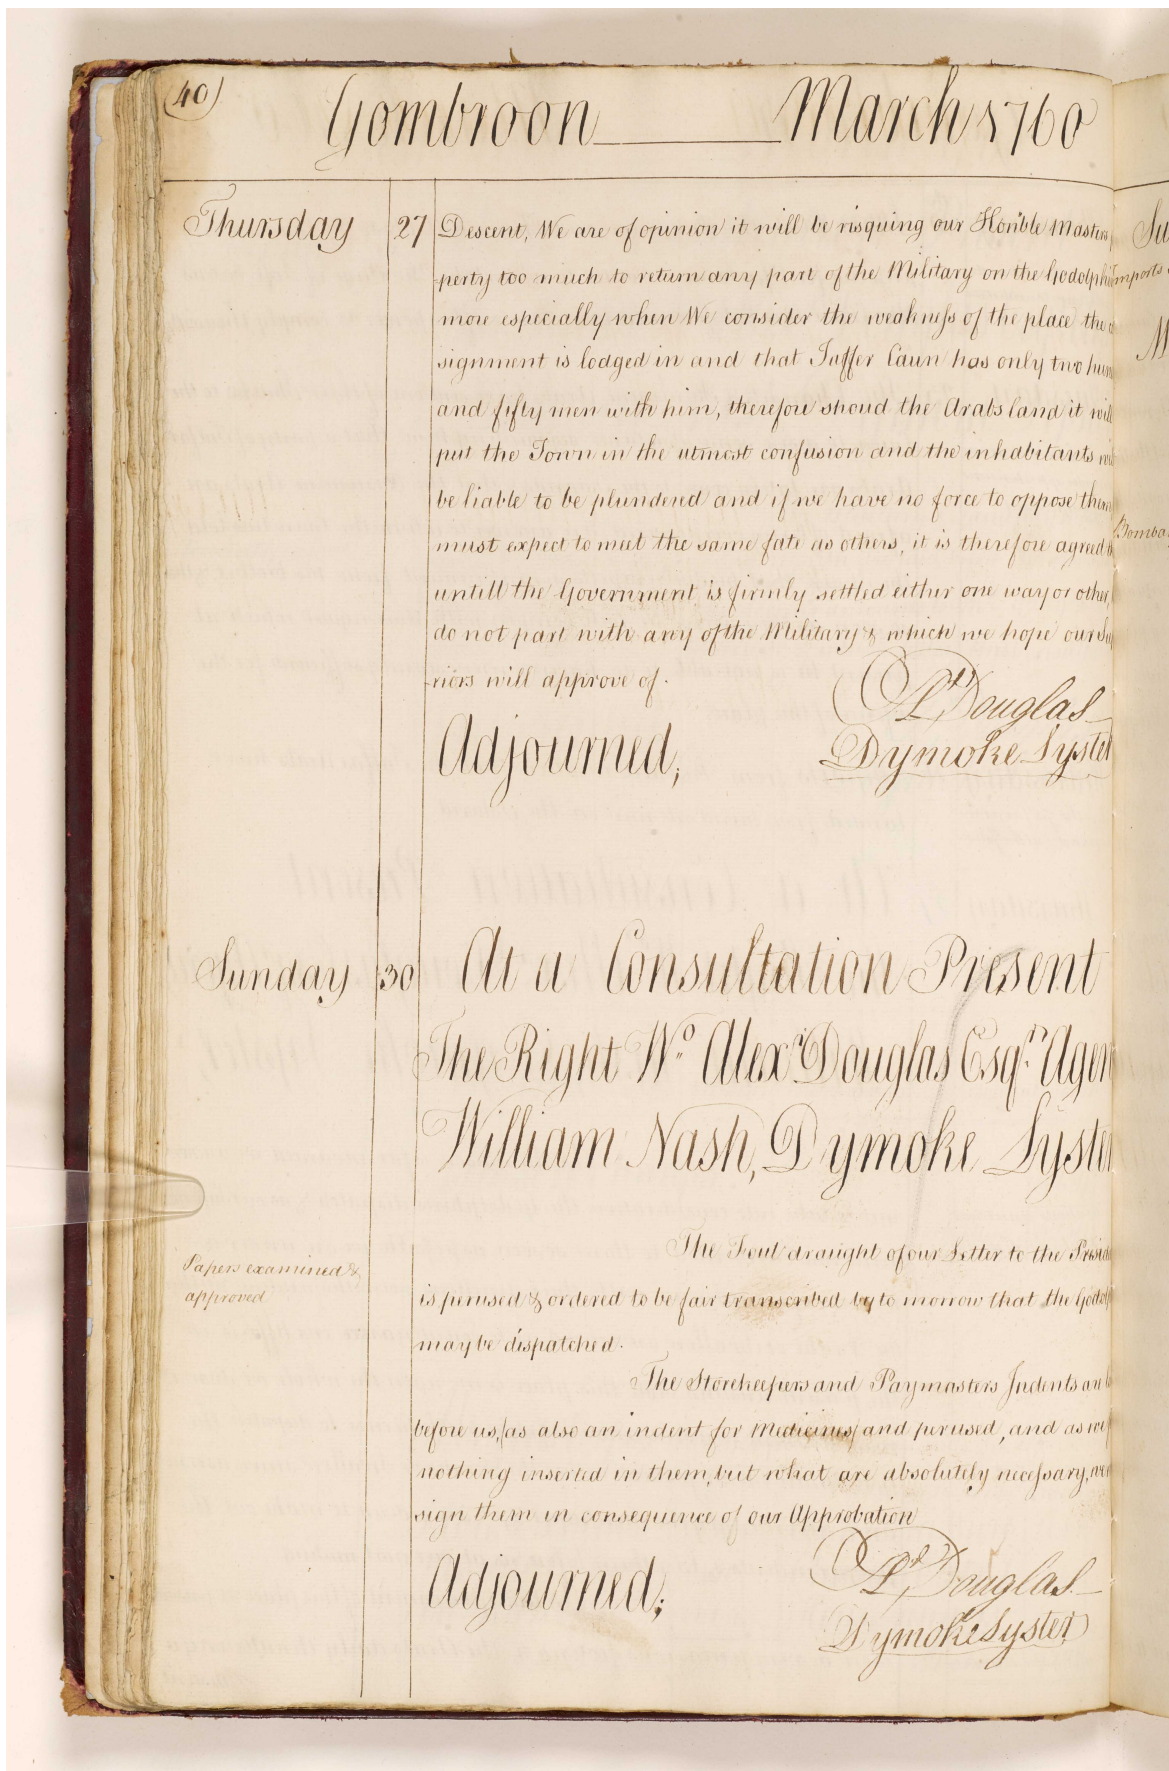 40
Gombroon March 1760
Thursday 27 Descent, We are of opinion it will be risquing our Honble Masters
perty too much to return any part of the Military on the Godolphi
more especially when We consider the weakness of the place the
signment is lodged in and that Jaffer Caun has only two hun
and fifty men with him, therefore shoud the Arabs land it will
put the Town in the utmost confusion and the inhabitants wi
be liable to be plundered and if we have no force to oppose them
must expect to meet the same fate as others, it is therefore agreed
untill the Government is firmly settled either one way or other,
do not part with any of the Military & which we hope our Su
riors will approve of.
Adjourned;
Ar Douglas
Dymoke Lyster
Sunday 30 At a Consultation Present
The Right Wo. Alexr Douglas Esqr. Agen
William Nash, Dymoke Lyster
Papers examined &
approved
The Foul draught of our Letter to the Presid
is perused & ordered to be fair transcribed by to morrow that the Godol
may be dispatched.
The Storekeepers and Paymasters Indents are
before us, (as also an indent for Medicines) and perused, and as we
nothing inserted in them, but what are absolutely necessary, we
sign them in consequence of our Approbation
Adjourned;
Ar Douglas
Dymoke Lyster
Su
Imports
M
Bomba